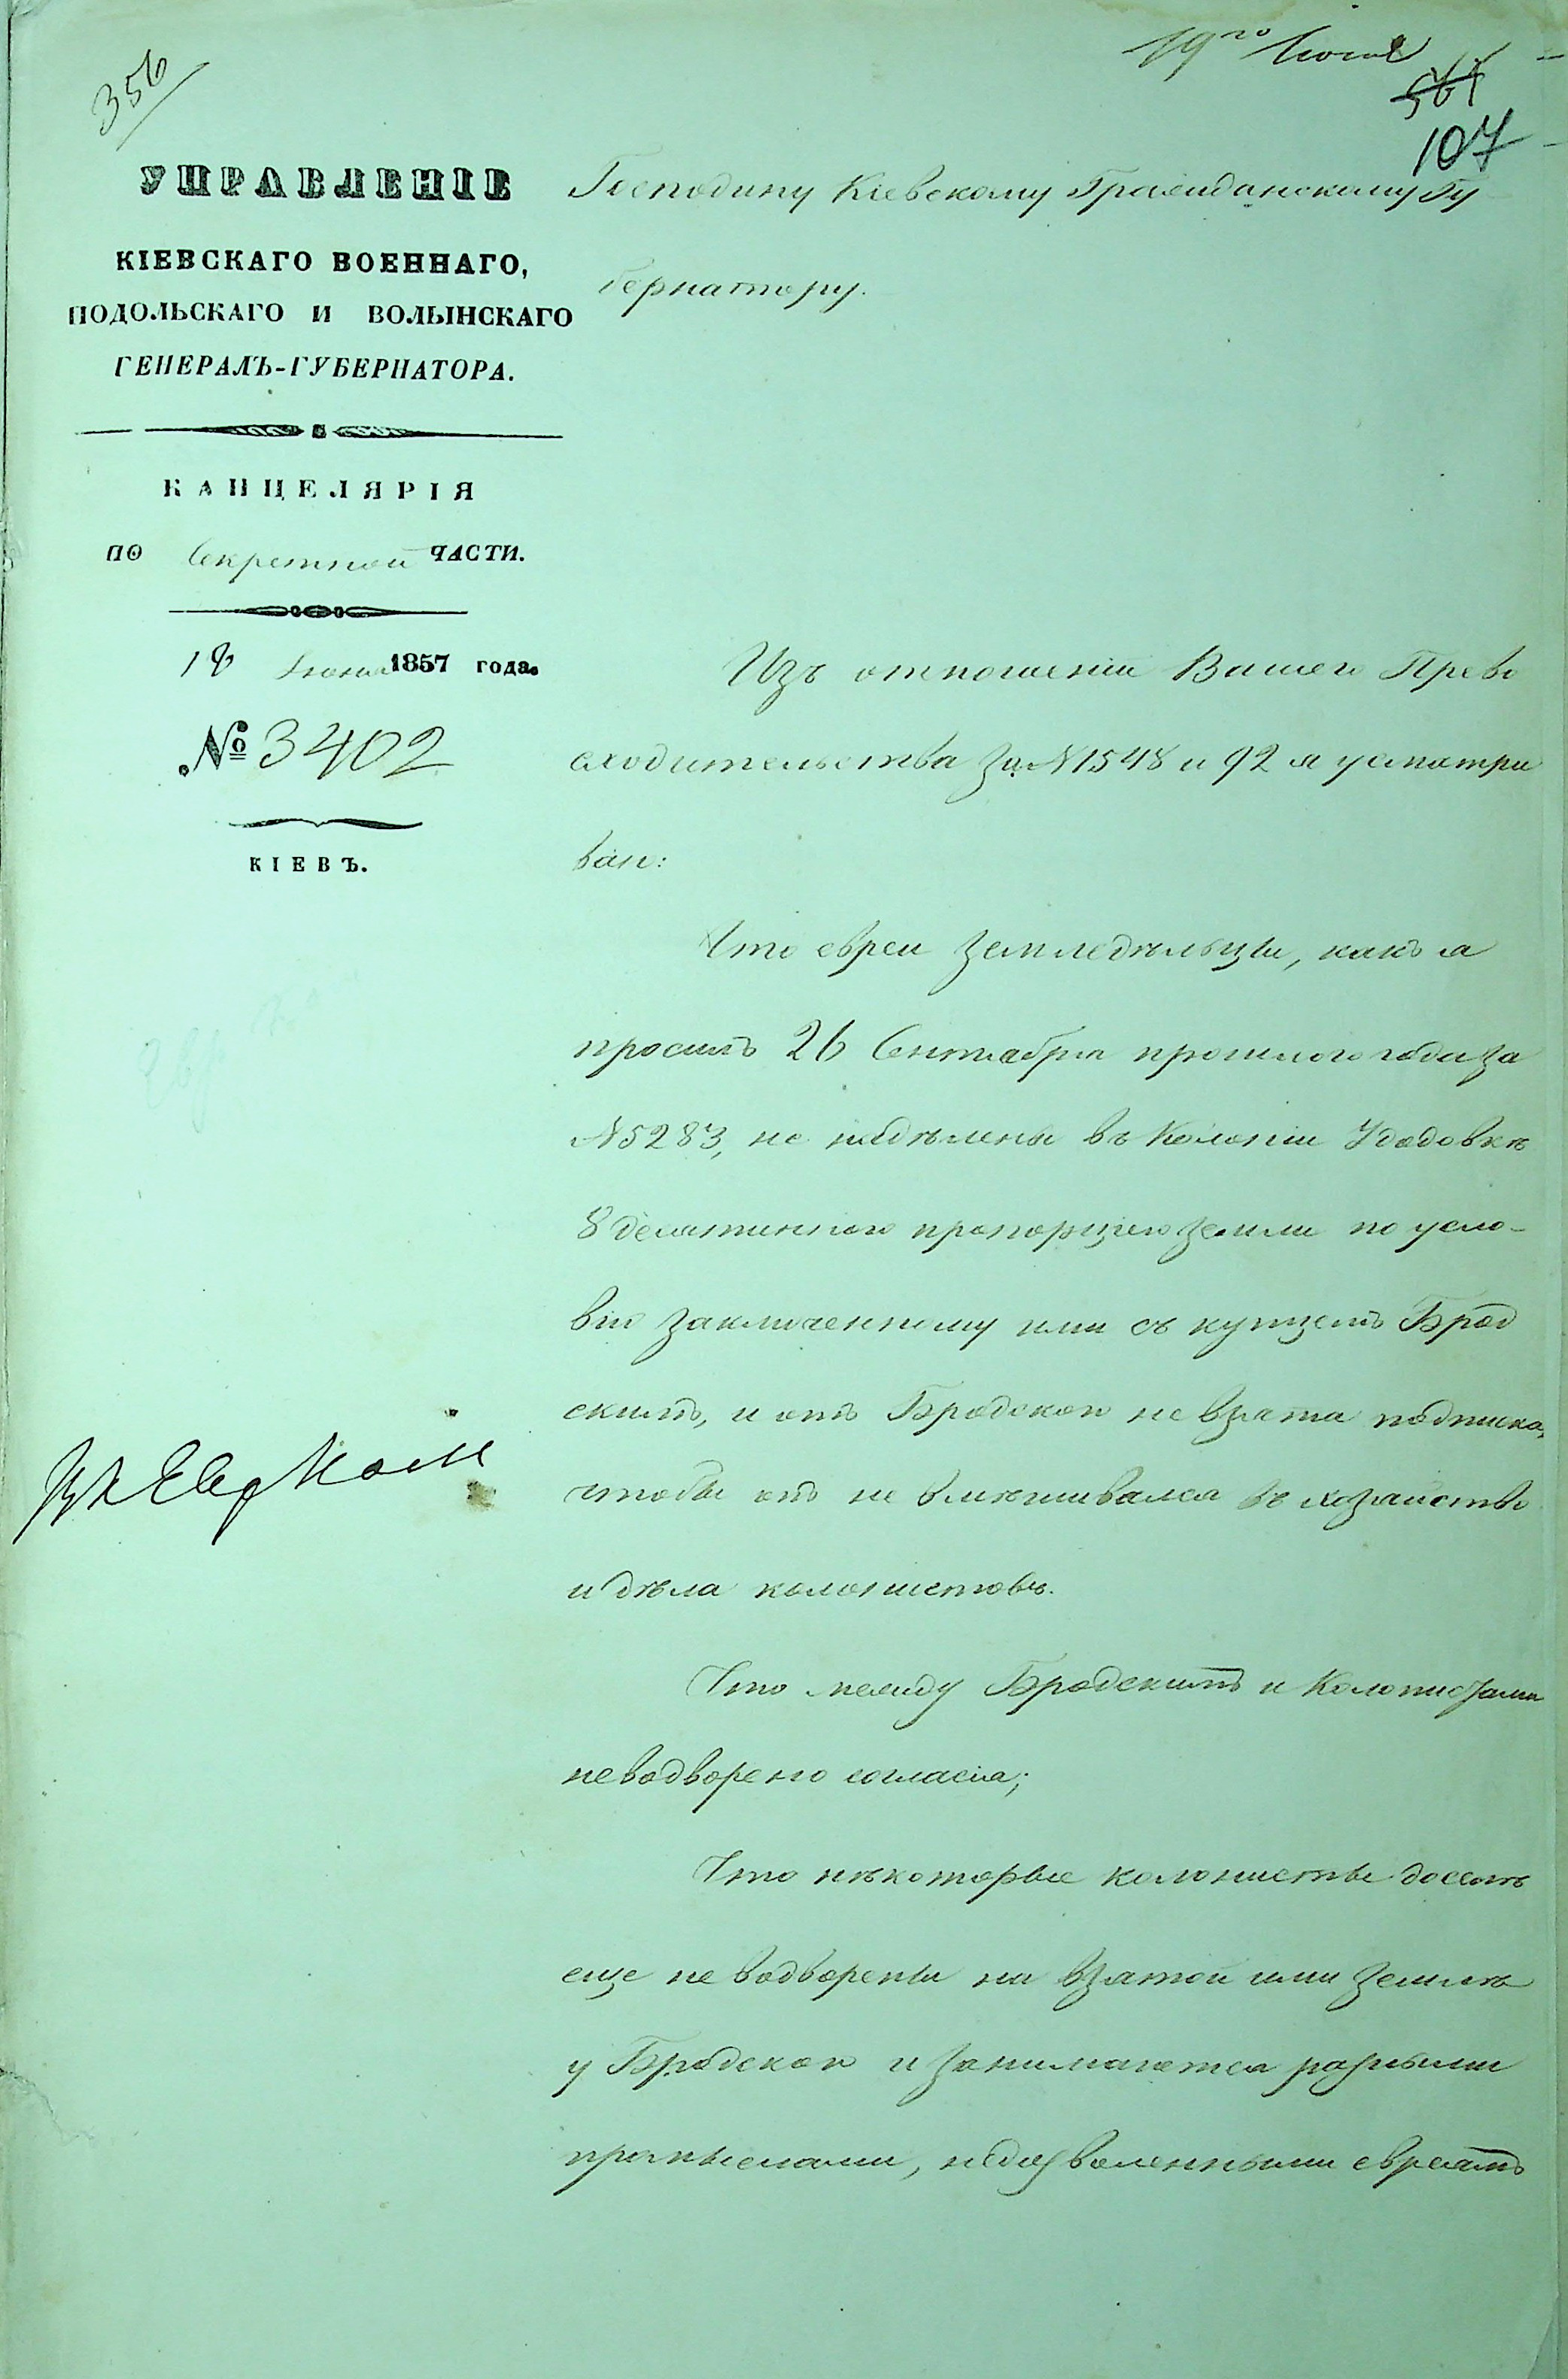 356
19го Июня
107
УПРАВЛЕНІЕ
КІЕВСКАГО ВОЕННАГО,
ПОДОЛЬСКАГО И ВОЛЫНСКАГО
ГЕНЕРАЛЪ-ГУБЕРНАТОРА.
КАНЦЕЛЯРІЯ
ПО Секретной ЧАСТИ.
18 Июня 1857 года.
№ 3402
КІЕВЪ.
Господину Кіевскому Гражданскому Гу
бернатору.
Изъ отношеній Вашего Прево
сходительства за №1548 и 92 я усматри
ваю:
Что евреи земледѣльцы, какъ я
просилъ 26 Сентября прошлого года за
№5283, не надѣлены въ Колоніи Удодовкѣ
8 десятинною пропорціею земли по усло-
вію заключенному ими съ купцемъ Брод
скимъ, и отъ Бродского не взята подписка,
чтобы онъ не вмѣшивался въ хозяйство
и дѣла колонистовъ.
Что между Бродскимъ и Колонистами
не водворено согласія;
Что нѣкоторые колонисты досель
еще не водворены на взятой ими землѣ
у Бродского и занимаются разными
промыслами, недозволенными евреямъ